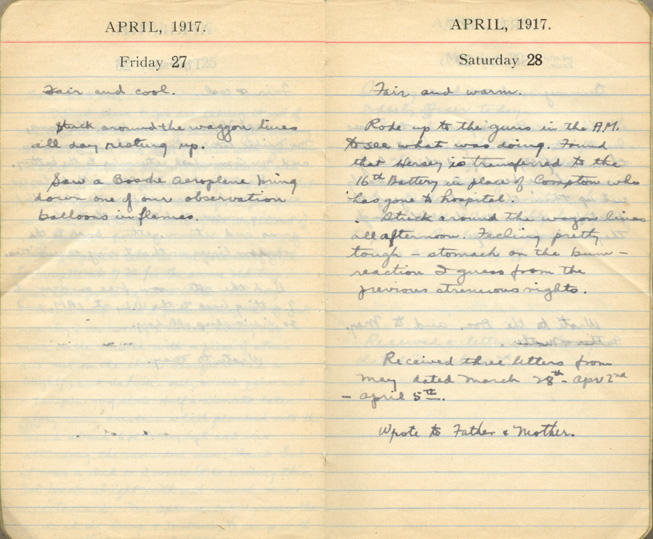 APRIL, 1917.
Friday 27
Fair and cool.
Stuck around the waggon lines
all day resting up.
Saw a Bosche Aeroplane bring
down one of our observation
balloons in flames.
APRIL, 1917.
Saturday 28
Fair and warm.
Rode up to the guns in the A.M.
to see what was doing. Found
that Hersey is transferred to the
16th Battery in place of Compton who
has gone to hospital.
Stuck around the wagon lines
all afternoon. Feeling pretty
tough - stomach on the bum -
reaction I guess from the
previous strenuous nights.
Received three letters from
May dated March 28th - Apr 2nd
- April 5th.
Wrote to Father & Mother.